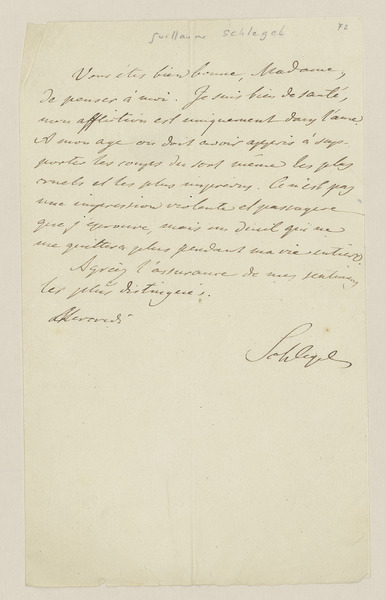 Guillaume Schlegel
72
Vous êtes bien bonne, Madame,
de penser à moi. Je suis bien de santé,
mon affliction est uniquement dans l'ame.
A mon age on doit avoir appris à sup-
porter les coups du sort même les plus
cruels et les plus imprévus. Ce n'est pas
une impression violente et passagere
que j'éprouve, mais un deuil qui ne
me quittera plus pendant ma vie entiere.
Agréez l'assurance de mes sentimens
les plus distingués.
Mercredi
Schlegel